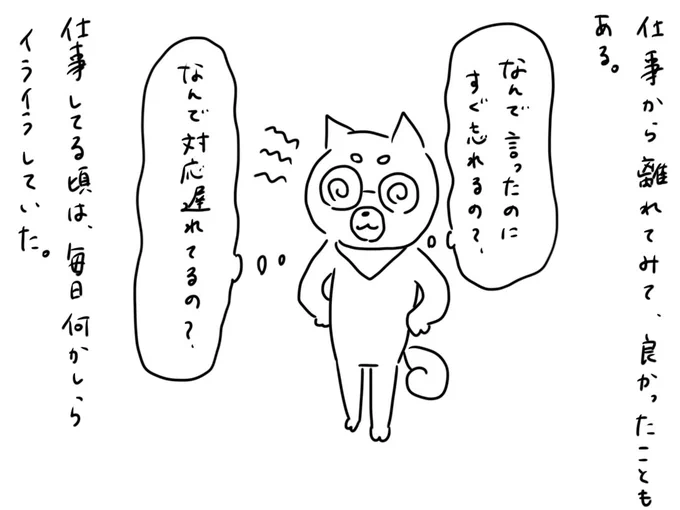 仕事から離れてみて、良かったことも
ある。
なんで言ったのに
すぐ忘れるの？
なんで対応遅れてるの？
仕事してる頃は、毎日何かしら
イライラしていた。